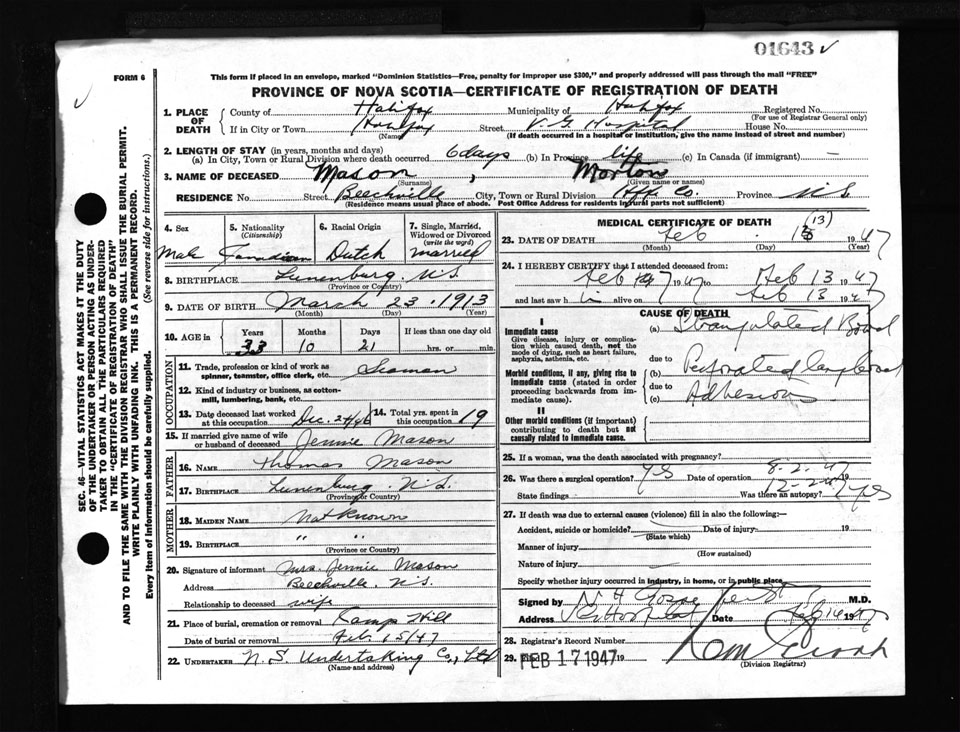 01643
FORM 6
This form if placed in an envelope, marked "Dominion Statistics—Free, penalty for improper use $300," and properly addressed will pass through the mail "FREE"
PROVINCE OF NOVA SCOTIA—CERTIFICATE OF REGISTRATION OF DEATH
1. PLACE OF DEATH
County of Halifax Municipality of Halifax Registered No.
(For use of Registrar General only)
If in City or Town Halifax Street V.G. Hospital House No.
(Name) (If death occurred in a hospital or institution, give the name instead of street and number)
2. LENGTH OF STAY (in years, months and days)
(a) In City, Town or Rural Division where death occurred 6 days (b) In Province life (c) In Canada (if immigrant) —
3. NAME OF DECEASED Mason, Morton
(Surname) (Given name or names)
RESIDENCE No. Street Beechville City, Town or Rural Division Hfx Co. Province N.S.
(Residence means usual place of abode. Post Office Address for residents in rural parts not sufficient)
4. Sex
Male
5. Nationality
(Citizenship)
Canadian
6. Racial Origin
Dutch
7. Single, Married, Widowed or Divorced
(write the word)
married
8. BIRTHPLACE Lunenburg, N.S.
(Province or Country)
9. DATE OF BIRTH March 23, 1913
(Month) (Day) (Year)
10. AGE in
Years Months Days If less than one day old
33 10 21 hrs. or min.
OCCUPATION
11. Trade, profession or kind of work as spinner, teamster, office clerk, etc. Seaman
12. Kind of industry or business, as cotton-mill, lumbering, bank, etc.
13. Date deceased last worked at this occupation Dec. 24/46
14. Total yrs. spent in this occupation 19
15. If married give name of wife or husband of deceased Jennie Mason
FATHER
16. NAME Thomas Mason
17. BIRTHPLACE Lunenburg, N.S.
(Province or Country)
MOTHER
18. MAIDEN NAME Not Known
19. BIRTHPLACE " "
(Province or Country)
20. Signature of informant Mrs. Jennie Mason
Address Beechville, N.S.
Relationship to deceased wife
21. Place of burial, cremation or removal Kamp Hill
Date of burial or removal Feb. 15/47
22. UNDERTAKER N.S. Undertaking Co., Ltd
(Name and address)
MEDICAL CERTIFICATE OF DEATH
(13)
23. DATE OF DEATH Feb 1947
(Month) (Day) (Year)
24. I HEREBY CERTIFY that I attended deceased from:
Feb 7 1947 to Feb 13 1947
and last saw h im alive on Feb 13 1947
CAUSE OF DEATH
I
Immediate cause
Give disease, injury or complication which caused death, not the mode of dying, such as heart failure, asphyxia, asthenia, etc.
(a) Strangulated Bowel
due to
Morbid conditions, if any, giving rise to immediate cause (stated in order proceeding backwards from immediate cause).
(b) Perforated Bowel
due to
(c) Adhesions
II
Other morbid conditions (if important) contributing to death but not causally related to immediate cause.
25. If a woman, was the death associated with pregnancy?
26. Was there a surgical operation? yes Date of operation 8.2.47
12-2-47
State findings Was there an autopsy? yes
27. If death was due to external causes (violence) fill in also the following:—
Accident, suicide or homicide? Date of injury 19
(State which)
Manner of injury
(How sustained)
Nature of injury
Specify whether injury occurred in industry, in home, or in public place
Signed by N H Gosse M.D.
Address V G Hospital Date Feb 14 1947
28. Registrar's Record Number
29. FEB 17 1947 19
(Division Registrar)
SEC. 46—VITAL STATISTICS ACT MAKES IT THE DUTY
OF THE UNDERTAKER OR PERSON ACTING AS UNDER-
TAKER TO OBTAIN ALL THE PARTICULARS REQUIRED
IN THE "CERTIFICATE OF REGISTRATION OF DEATH"
AND TO FILE THE SAME WITH THE DIVISION REGISTRAR WHO SHALL ISSUE THE BURIAL PERMIT.
WRITE PLAINLY WITH UNFADING INK. THIS IS A PERMANENT RECORD.
Every item of information should be carefully supplied. (See reverse side for instructions.)